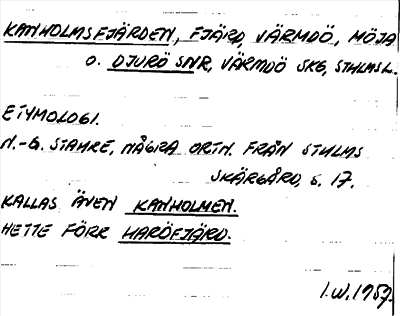 KANHOLMSFJÄRDEN, FJÄRD, VÄRMDÖ, MÖJA
O. DJURÖ SNR, VÄRMDÖ SKG, STHLMSL.
ETYMOLOGI.
N.-G. STAHRE, NÅGRA ORTN. FRÅN STHLMS
SKÄRGÅRD, S. 17.
KALLAS ÄVEN KANHOLMEN.
HETTE FÖRR HARÖFJÄRD.
I.W. 1957.